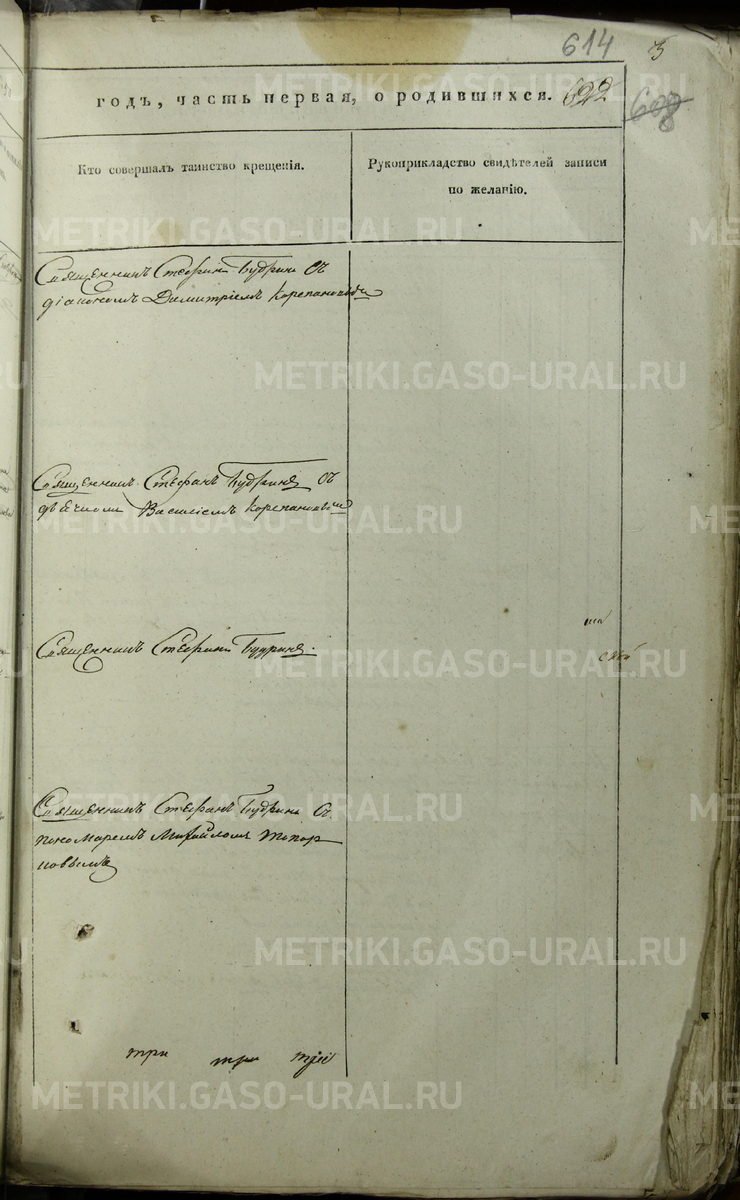 614 3
годъ, часть первая, о родившихся. 622 608
Кто совершалъ таинство крещенія.
Рукоприкладство свидѣтелей записи
по желанію.
Священникъ Стефанъ Будринъ съ
діакономъ Димитріемъ Корепановымъ
Священникъ Стефанъ Будринъ съ
дьячкомъ Василіемъ Корепановымъ
Священникъ Стефанъ Будринъ.
Священникъ Стефанъ Будринъ съ
пономаремъ Михайломъ Топор
новымъ
три три три
METRIKI.GASO-URAL.RU